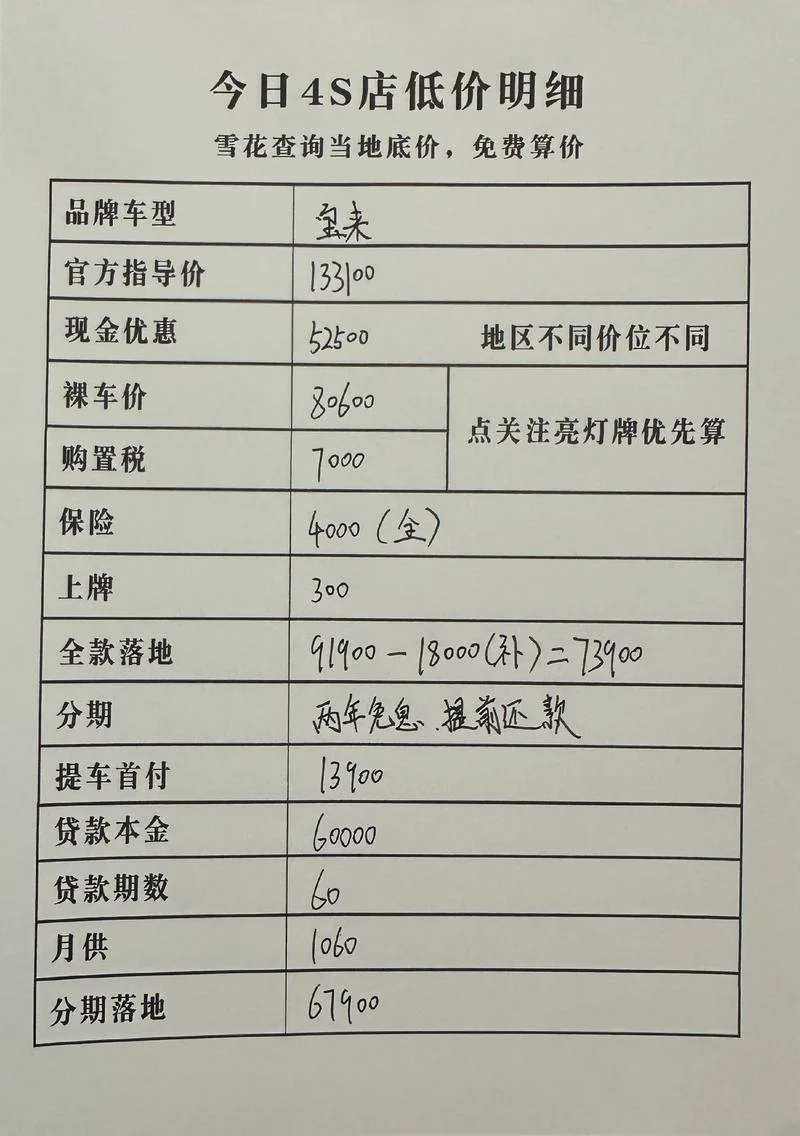 今日4S店低价明细
雪花查询当地底价，免费算价
品牌车型 宝来
官方指导价 133100
现金优惠 52500 地区不同价位不同
裸车价 80600
点关注亮灯牌优先算
购置税 7000
保险 4000（全）
上牌 300
全款落地 91900－18000(补)=73900
分期 两年免息、提前还款
提车首付 13900
贷款本金 60000
贷款期数 60
月供 1060
分期落地 67900